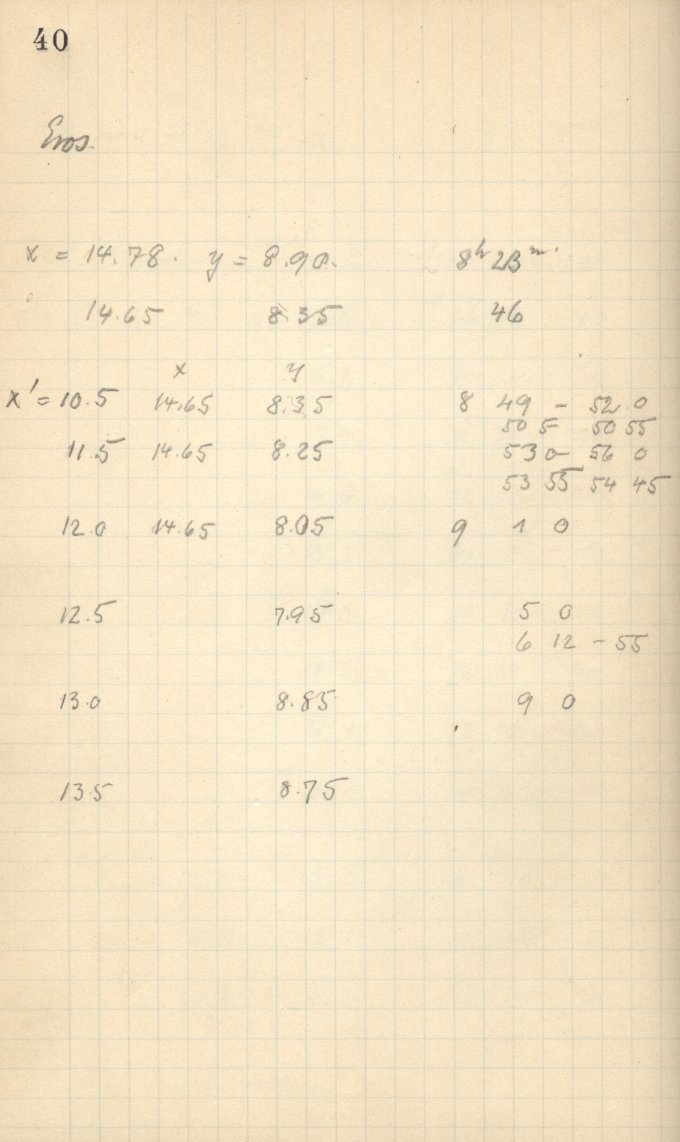 40
Eros.
x = 14.78. y = 8.90. 8h 23m.
14.65 8.35 46
x y
x' = 10.5 14.65 8.35 8 49 - 52 0
50 5 50 55
11.5 14.65 8.25 53 0 - 56 0
53 55 54 45
12.0 14.65 8.05 9 1 0
12.5 7.95 5 0
6 12 - 55
13.0 8.85 9 0
13.5 8.75